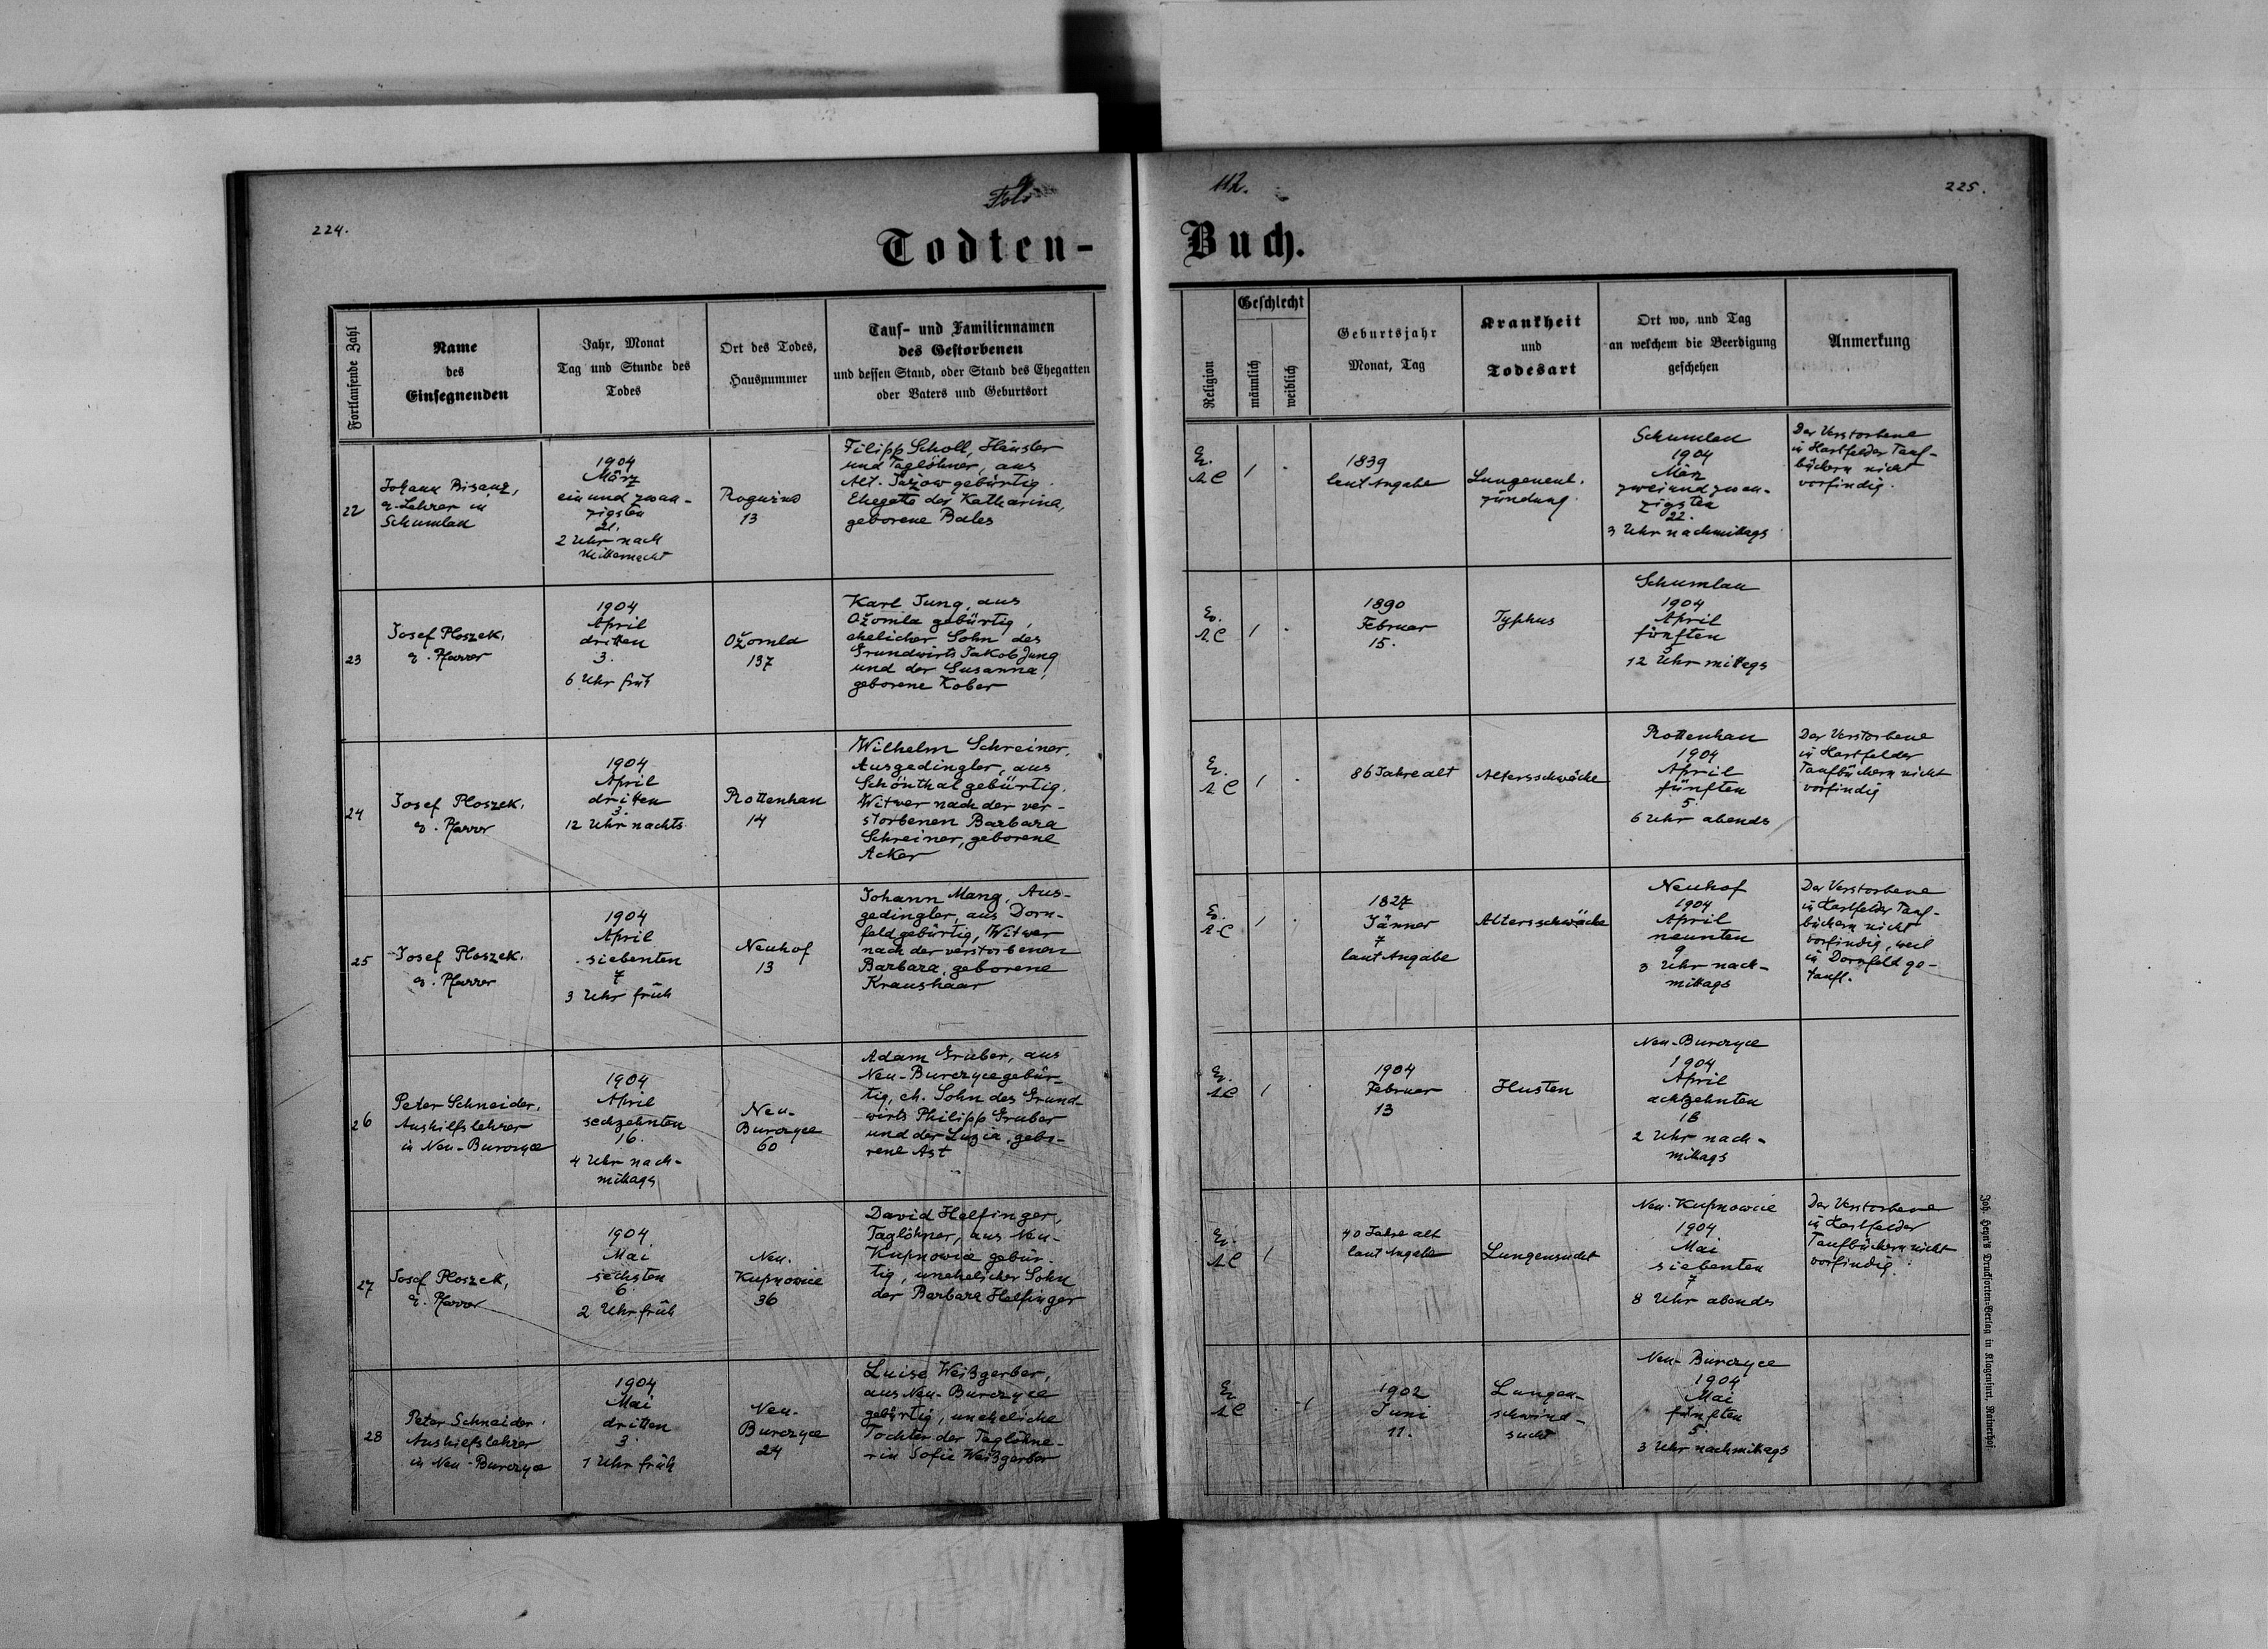 Folio
112.
224.
225.
Todten-
Buch.
Fortlaufende Zahl
Name
des
Einsegnenden
Jahr, Monat
Tag und Stunde des
Todes
Ort des Todes,
Hausnummer
Tauf- und Familiennamen
des Gestorbenen
und dessen Stand, oder Stand des Ehegatten
oder Vaters und Geburtsort
Religion
Geschlecht
männlich
weiblich
Geburtsjahr
Monat, Tag
Krankheit
und
Todesart
Ort wo, und Tag
an welchem die Beerdigung
geschehen
Anmerkung
22
Johann Bisanz,
e. Lehrer in
Schumlau
1904
März
ein und zwan-
zigsten
21.
2 Uhr nach
Mitternacht
Roguzno
13
Filipp Scholl, Häusler
und Taglöhner, aus
Alt-Jażow gebürtig.
Ehegatte der Katharina,
geborene Bales
Ev.
AC
1
1839
laut Angabe
Lungenent-
zündung
Schumlau
1904
März
zwei und zwan-
zigsten
22.
3 Uhr nachmittags
Der Verstorbene
in Hartfelder Tauf-
büchern nicht
vorfindig.
23
Josef Ploszek,
e. Pfarrer
1904
April
dritten
3.
6 Uhr früh
Ożomla
137
Karl Jung, aus
Ożomla gebürtig,
ehelicher Sohn des
Grundwirts Jakob Jung
und der Susanna,
geborene Kober
Ev.
AC
1
1890
Februar
15.
Typhus
Schumlau
1904
April
fünften
5
12 Uhr mittags
24
Josef Ploszek,
e. Pfarrer
1904
April
dritten
3.
12 Uhr nachts
Rottenhan
14
Wilhelm Schreiner,
Ausgedingler, aus
Schönthal gebürtig.
Witwer nach der ver-
storbenen Barbara
Schreiner, geborene
Acker
Ev.
AC
1
86 Jahre alt
Altersschwäche
Rottenhan
1904
April
fünften
5.
6 Uhr abends
Der Verstorbene
in Hartfelder
Taufbüchern nicht
vorfindig
25
Josef Ploszek,
e. Pfarrer
1904
April
siebenten
7
3 Uhr früh
Neuhof
13
Johann Mang, Aus-
gedingler, aus Dorn-
feld gebürtig, Witwer
nach der verstorbenen
Barbara, geborene
Kraushaar
Ev.
AC
1
1827
Jänner
7
laut Angabe
Altersschwäche
Neuhof
1904
April
neunten
9
3 Uhr nach-
mittags
Der Verstorbene
in Hartfelder Tauf-
büchern nicht
vorfindig, weil
in Dornfeld ge-
tauft.
26
Peter Schneider,
Aushilfslehrer
in Neu-Burczyce
1904
April
sechzehnten
16.
4 Uhr nach-
mittags
Neu-
Burczyce
60
Adam Gruber, aus
Neu-Burczyce gebür-
tig, eh. Sohn des Grund-
wirts Philipp Gruber
und der Luzia, gebo-
rene Ast
Ev.
AC
1
1904
Februar
13
Husten
Neu-Burczyce
1904
April
achtzehnten
18
2 Uhr nach-
mittags
27
Josef Ploszek,
e. Pfarrer
1904
Mai
sechsten
6.
2 Uhr früh
Neu-
Kupnowice
36
David Helfinger,
Taglöhner, aus Neu-
Kupnowice gebür-
tig, unehelicher Sohn
der Barbara Helfinger
Ev.
AC
1
40 Jahre alt
laut Angabe
Lungensucht
Neu-Kupnowice
1904
Mai
siebenten
7
8 Uhr abends
Der Verstorbene
in Hartfelder
Taufbüchern nicht
vorfindig.
28
Peter Schneider,
Aushilfslehrer
in Neu-Burczyce
1904
Mai
dritten
3.
1 Uhr früh
Neu-
Burczyce
24
Luise Weißgerber,
aus Neu-Burczyce
gebürtig, uneheliche
Tochter der Taglöhne-
rin Sofie Weißgerber
Ev
AC
1
1902
Juni
11.
Lungen-
schwind-
sucht
Neu-Burczyce
1904
Mai
fünften
5.
3 Uhr nachmittags
Joh. Heyn's Drucksorten-Verlag in Klagenfurt, Rainerhof.